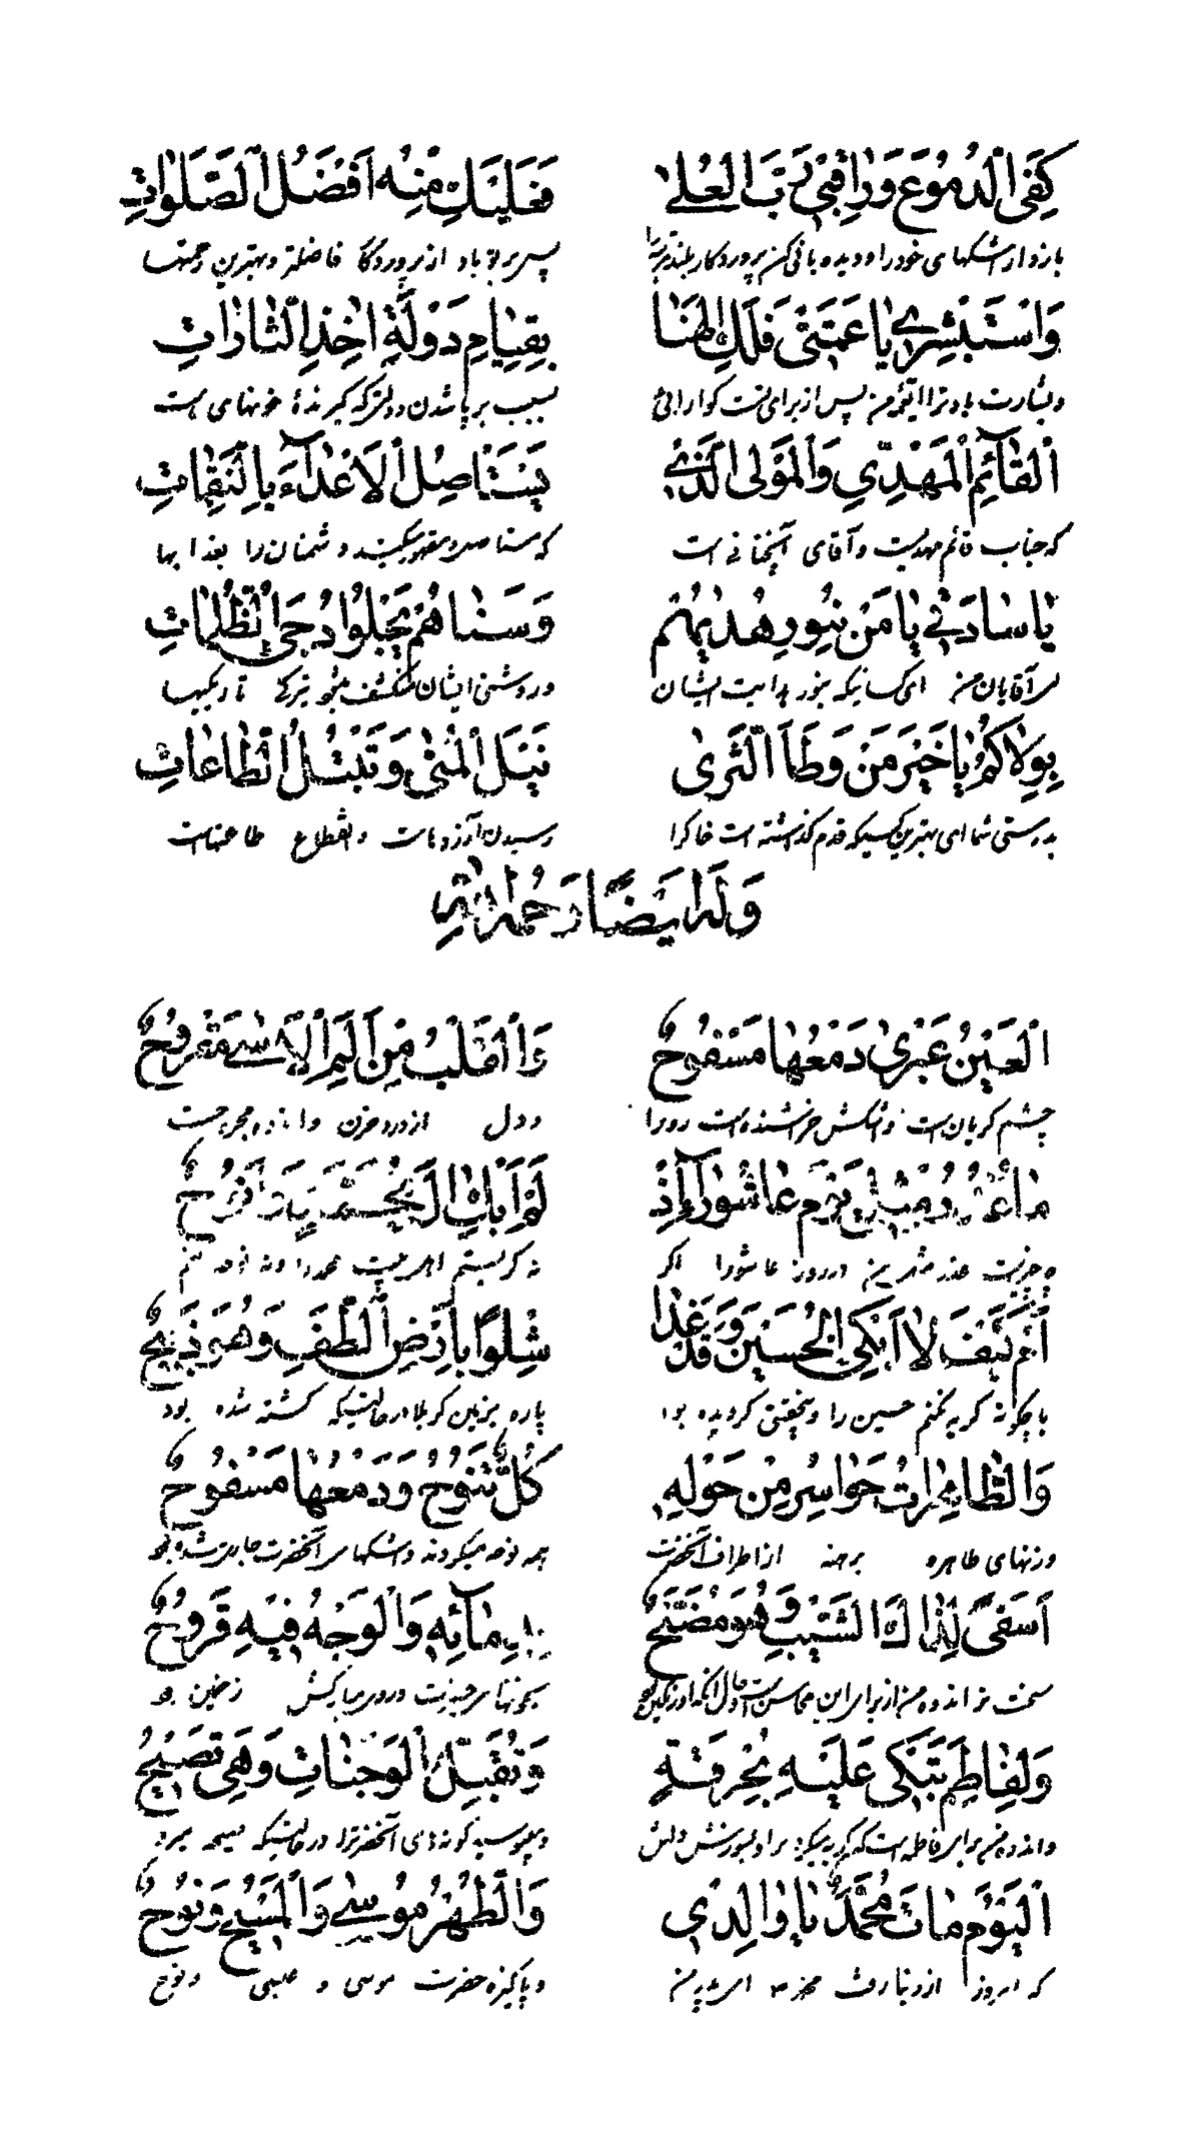 كِفَى الدُّمُوعَ وَرَاقِبِي رَبَّ الْعُلَى فَعَلَيْكِ مِنْهُ أَفْضَلُ الصَّلَوَاتِ
بازدار اشکهای خود را و دیده بانی کن پروردکار بلند مرتبه را پس بر تو باد از پروردکار فاضلتر و بهترین رحمتها
وَاسْتَبْشِرِي يَا عَمَّتِي فَلَكِ الْهَنَا بِقِيَامِ دَوْلَةِ آخِذِ الثَّارَاتِ
و بشارت باد ترا ای عمه من پس از برای تست کوارائی بسبب برپا شدن دولتی که کیرندهٔ خونهای است
الْقَائِمِ الْمَهْدِيِّ وَالْمَوْلَى الَّذِي يَسْتَأْصِلُ الْأَعْدَاءَ بِالنَّقِمَاتِ
که جناب قائم مهدیست و آقای آنچنانی است که مستاصل و مقهور میکند دشمنان را بعذابها
يَا سَادَتِي يَا مَنْ بِنُورِ هُدَيهُمُ وَسَنَاهُمُ يَجْلُوا دُجَى الظُّلُمَاتِ
ای آقایان من ای کسانیکه بنور هدایت ایشان و روشنی ایشان منکشف میشود تیرکی تاریکیها
بِوِلَاكُمُ يَا خَيْرَ مَنْ وَطَأَ الثَّرَى نَيْلُ الْمُنَى وَتَبَتُّلُ الطَّاعَاتِ
بدوستی شما ای بهترین کسیکه قدم کذاشته است خاک را رسیدن آرزوهاست و انقطاع طاعتهاست
وَلَهُ أَيْضًا رَحِمَهُ اللهُ
الْعَيْنُ عَبْرَى دَمْعُهَا مَسْفُوحُ وَالْقَلْبُ مِنْ أَلَمِ الْأَسَى مَقْرُوحُ
چشم کریان است و اشکش ریزنده است و دل از درد حزن و اندوه مجروحست
مَا عُذْرُ مِثْلِي يَوْمَ عَاشُورَا إِذَا لَمْ أَبْكِ آلَ مُحَمَّدٍ وَأَنُوحُ
چه چیز است عذر مثل من در روز عاشورا اکر نه کریستم اهل بیت محمد را و نه نوحه کنم
أَمْ كَيْفَ لَا أَبْكِي الْحُسَيْنَ وَقَدْ غَدَا شِلْوًا بِأَرْضِ الطَّفِّ وَهُوَ ذَبِيحُ
یا چکونه کریه نکنم حسین را و بتحقیق کردیده بود پاره بزمین کربلا در حالتیکه کشته شده بود
وَالطَّاهِرَاتُ حَوَاسِرٌ مِنْ حَوْلِهِ كُلٌّ تَنُوحُ وَدَمْعُهَا مَسْفُوحُ
و زنهای طاهره برهنه از اطراف آنحضرت همه نوحه میکردند و اشکها بر آنحضرت جاری شده بود
أَسَفِي لِذَاكَ الشَّيْبِ وَهُوَ مُضَمَّخٌ بِدِمَائِهِ وَالْوَجْهُ فِيهِ قُرُوحُ
وَلِفَاطِمٍ تَبْكِي عَلَيْهِ بِحُرْقَةٍ وَتُقَبِّلُ الْوَجَنَاتِ وَهِيَ تَصِيحُ
الْيَوْمَ مَاتَ مُحَمَّدٌ يَا وَالِدِي وَالطُّهْرُ مُوسَى وَالْمَسِيحُ وَنُوحُ
که امروز از دنیا رفت محمد ص ای پدر من و پاکیزه حضرت موسی و عیسی و نوح